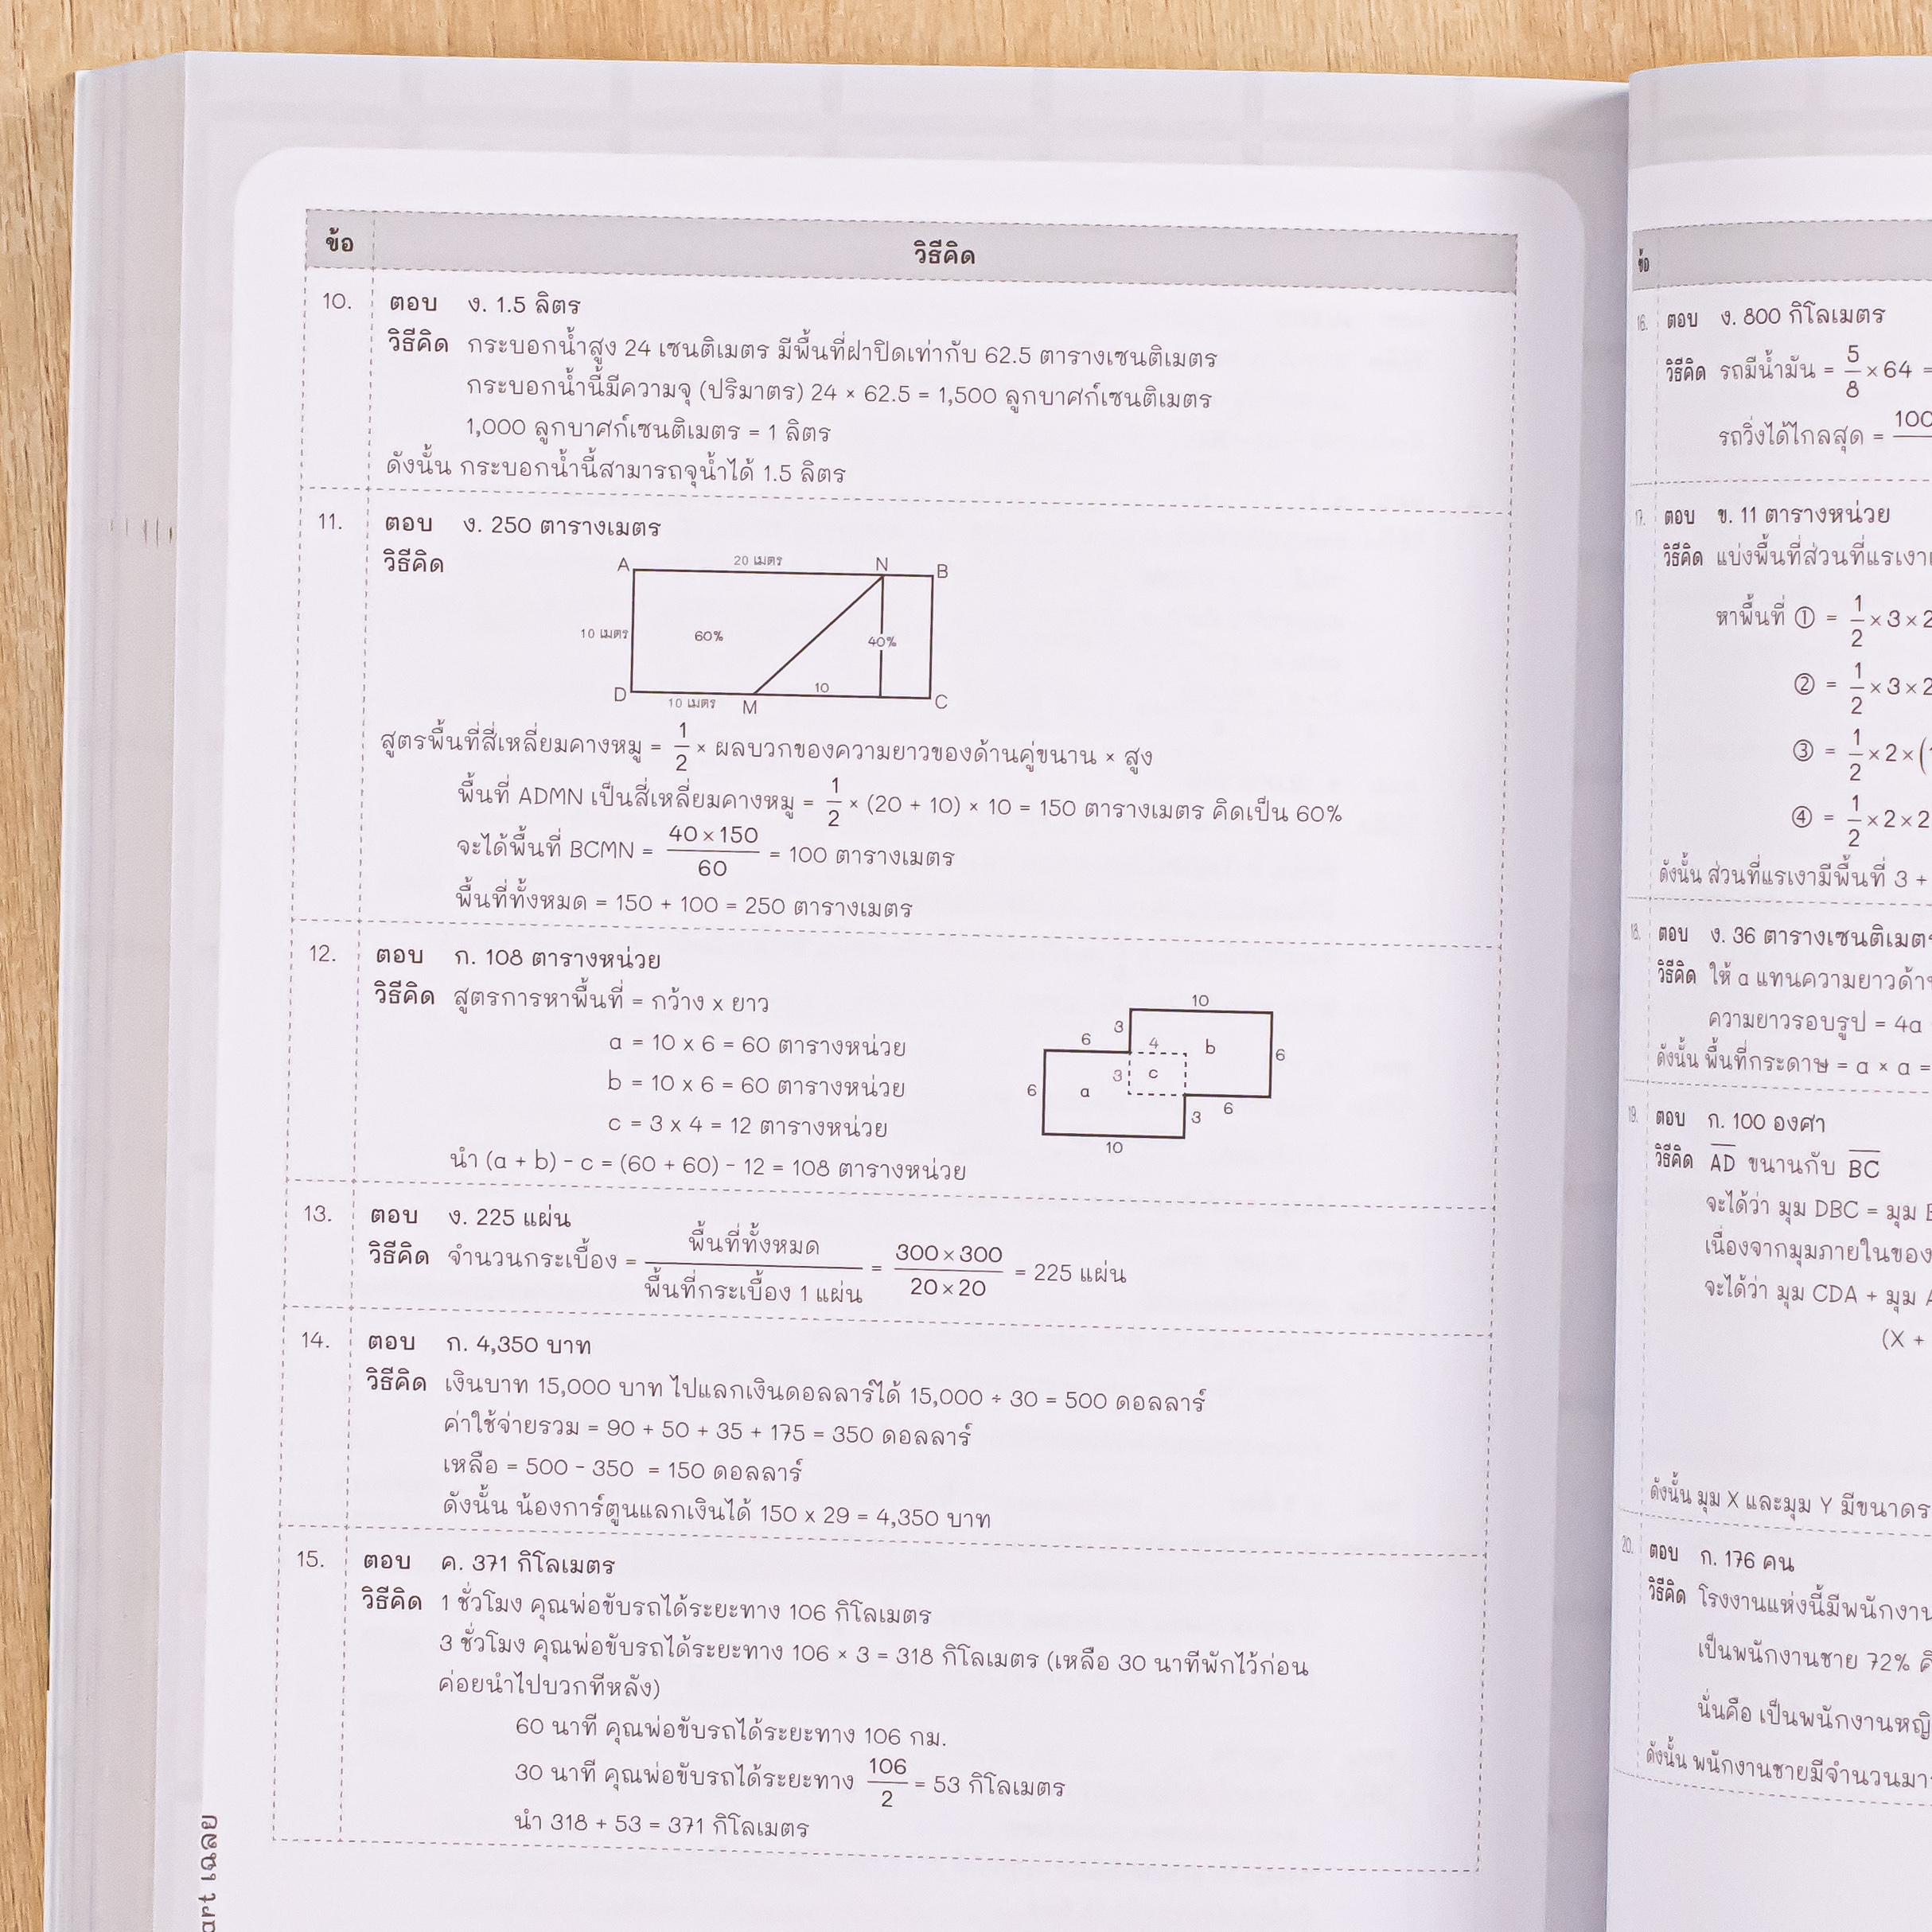 ข้อ วิธีคิด
10. ตอบ ง. 1.5 ลิตร
วิธีคิด กระบอกน้ำสูง 24 เซนติเมตร มีพื้นที่ฝาปิดเท่ากับ 62.5 ตารางเซนติเมตร
กระบอกน้ำนี้มีความจุ (ปริมาตร) 24 × 62.5 = 1,500 ลูกบาศก์เซนติเมตร
1,000 ลูกบาศก์เซนติเมตร = 1 ลิตร
ดังนั้น กระบอกน้ำนี้สามารถจุน้ำได้ 1.5 ลิตร
11. ตอบ ง. 250 ตารางเมตร
วิธีคิด
A 20 เมตร N B
10 เมตร 60% 40%
D 10 เมตร M 10 C
สูตรพื้นที่สี่เหลี่ยมคางหมู = 1/2 × ผลบวกของความยาวของด้านคู่ขนาน × สูง
พื้นที่ ADMN เป็นสี่เหลี่ยมคางหมู = 1/2 × (20 + 10) × 10 = 150 ตารางเมตร คิดเป็น 60%
จะได้พื้นที่ BCMN = 40×150/60 = 100 ตารางเมตร
พื้นที่ทั้งหมด = 150 + 100 = 250 ตารางเมตร
12. ตอบ ก. 108 ตารางหน่วย
วิธีคิด สูตรการหาพื้นที่ = กว้าง x ยาว
a = 10 x 6 = 60 ตารางหน่วย
b = 10 x 6 = 60 ตารางหน่วย
c = 3 x 4 = 12 ตารางหน่วย
นำ (a + b) - c = (60 + 60) - 12 = 108 ตารางหน่วย
10
3
6 4 b 6
6 a 3 c
6
3
10
13. ตอบ ง. 225 แผ่น
วิธีคิด จำนวนกระเบื้อง = พื้นที่ทั้งหมด/พื้นที่กระเบื้อง 1 แผ่น = 300×300/20×20 = 225 แผ่น
14. ตอบ ก. 4,350 บาท
วิธีคิด เงินบาท 15,000 บาท ไปแลกเงินดอลลาร์ได้ 15,000 ÷ 30 = 500 ดอลลาร์
ค่าใช้จ่ายรวม = 90 + 50 + 35 + 175 = 350 ดอลลาร์
เหลือ = 500 - 350 = 150 ดอลลาร์
ดังนั้น น้องการ์ตูนแลกเงินได้ 150 x 29 = 4,350 บาท
15. ตอบ ค. 371 กิโลเมตร
วิธีคิด 1 ชั่วโมง คุณพ่อขับรถได้ระยะทาง 106 กิโลเมตร
3 ชั่วโมง คุณพ่อขับรถได้ระยะทาง 106 × 3 = 318 กิโลเมตร (เหลือ 30 นาทีพักไว้ก่อน
ค่อยนำไปบวกทีหลัง)
60 นาที คุณพ่อขับรถได้ระยะทาง 106 กม.
30 นาที คุณพ่อขับรถได้ระยะทาง 106/2 = 53 กิโลเมตร
นำ 318 + 53 = 371 กิโลเมตร
art เฉลย
ข้อ
16. ตอบ ง. 800 กิโลเมตร
วิธีคิด รถมีน้ำมัน = 5/8 × 64 =
รถวิ่งได้ไกลสุด = 100
17. ตอบ ข. 11 ตารางหน่วย
วิธีคิด แบ่งพื้นที่ส่วนที่แรเงา
หาพื้นที่ ① = 1/2 × 3 × 2
② = 1/2 × 3 × 2
③ = 1/2 × 2 × (
④ = 1/2 × 2 × 2
ดังนั้น ส่วนที่แรเงามีพื้นที่ 3 +
18. ตอบ ง. 36 ตารางเซนติเมตร
วิธีคิด ให้ a แทนความยาวด้าน
ความยาวรอบรูป = 4a
ดังนั้น พื้นที่กระดาษ = a × a =
19. ตอบ ก. 100 องศา
วิธีคิด AD ขนานกับ BC
จะได้ว่า มุม DBC = มุม
เนื่องจากมุมภายในของ
จะได้ว่า มุม CDA + มุม
(X +
ดังนั้น มุม X และมุม Y มีขนาด
20. ตอบ ก. 176 คน
วิธีคิด โรงงานแห่งนี้มีพนักงาน
เป็นพนักงานชาย 72%
นั่นคือ เป็นพนักงานหญิ
ดังนั้น พนักงานชายมีจำนวน